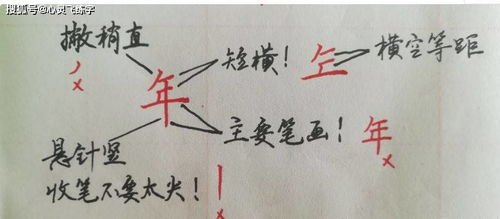 搜狐号@心灵飞练字
撇稍直
短横!
横空等距
年
主要笔画!
年
悬针竖
收笔不要太尖!